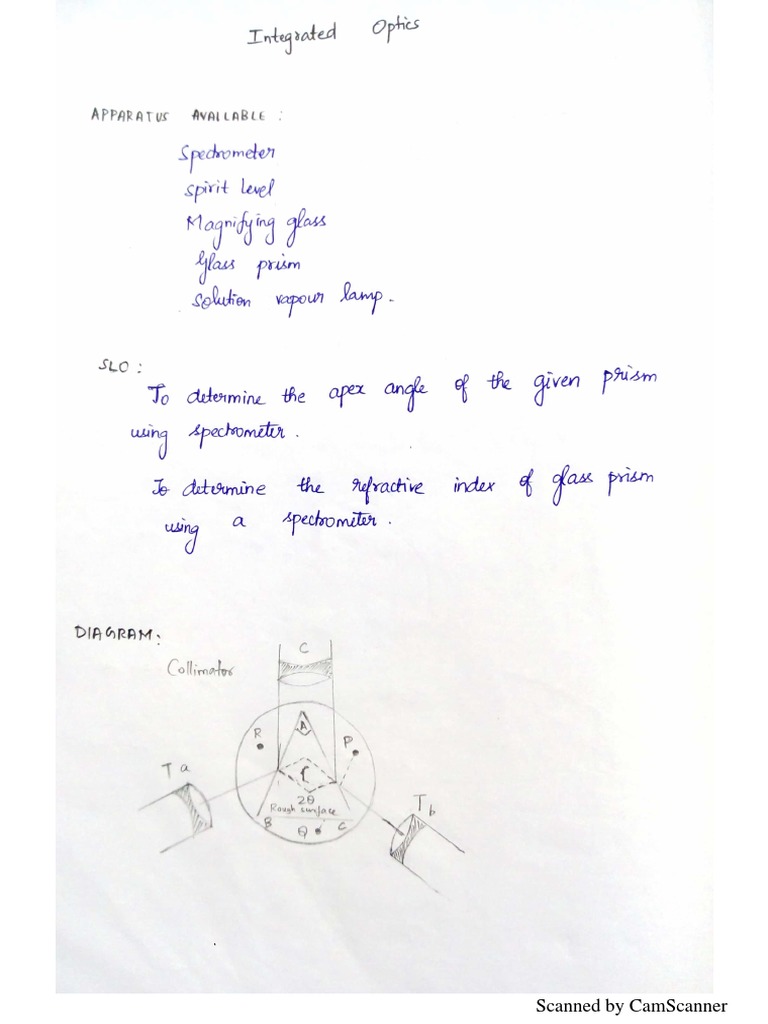 Integrated Optics
APPARATUS AVAILABLE :
Spectrometer
Spirit level
Magnifying glass
Glass prism
Solution vapour lamp.
SLO :
To determine the apex angle of the given prism
using spectrometer.
To determine the refractive index of glass prism
using a spectrometer.
DIAGRAM:
C
Collimator
A
R
P
Ta
2θ
Rough surface
B
Q
C
Tb
Scanned by CamScanner